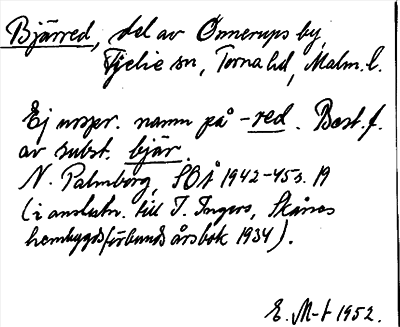 Bjärred, del av Önnerups by,
Fjelie sn, Torna hd, Malm. l.
Ej urspr. namn på -red. Best. f.
av subst. bjär.
N. Palmborg, SOÅ 1942-45 s. 19
(i anslutn. till I. Ingers, Skånes
hembygdsförbunds årsbok 1934).
E. M-t 1952.